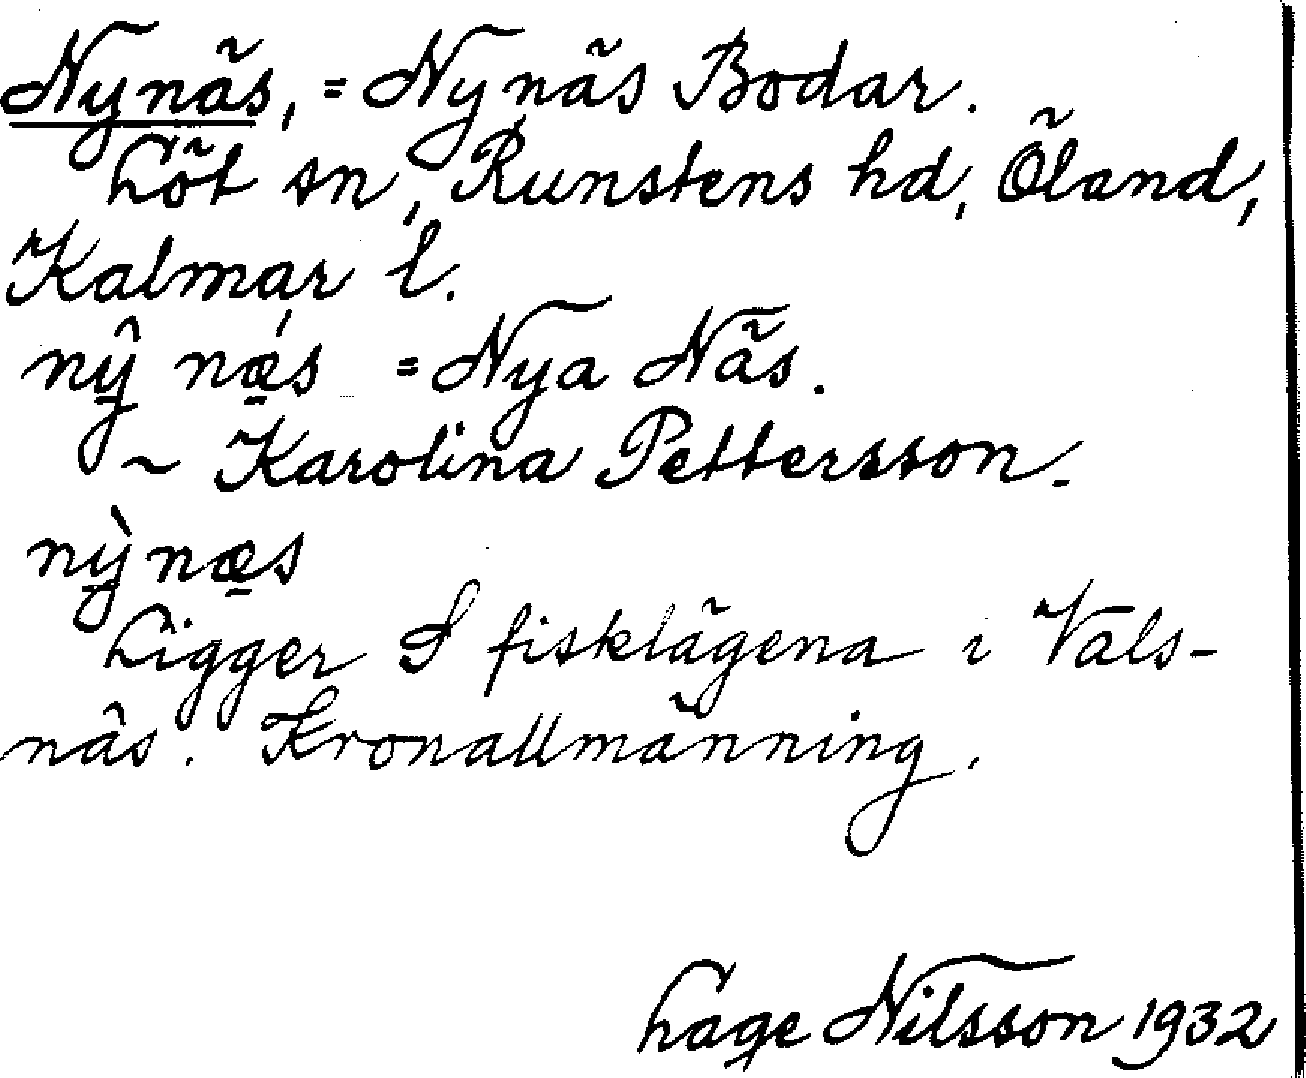 Nynäs, = Nynäs Bodar.
Löt sn, Runstens hd, Öland,
Kalmar l.
nŷ nǽ̱s = Nya Näs.
~ Karolina Pettersson.
nỳnæ̱s
Ligger I fisklägena i Vals-
näs. Kronallmänning.
Lage Nilsson 1932